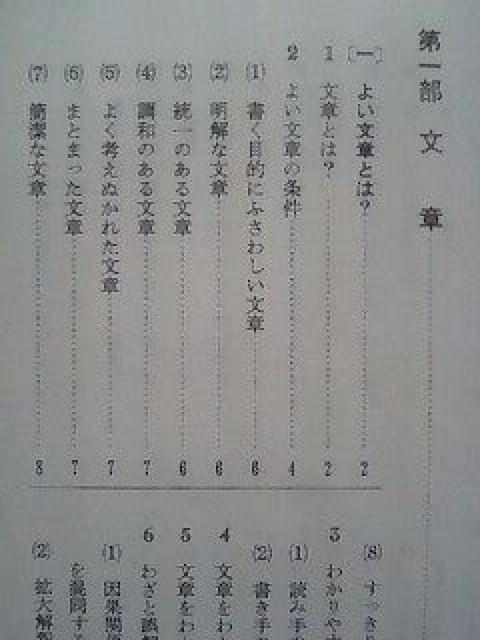 第一部 文章
〔一〕 よい文章とは? 2
1 文章とは? 2
2 よい文章の条件 4
(1) 書く目的にふさわしい文章 6
(2) 明解な文章 6
(3) 統一のある文章 6
(4) 調和のある文章 7
(5) よく考えぬかれた文章 7
(6) まとまった文章 7
(7) 簡潔な文章 8
(8) すっき
3 わかりやす
(1) 読み手
(2) 書き手
4 文章をわ
5 文章をわ
6 わざと誤解
(1) 因果関係
を混同する
(2) 拡大解釈